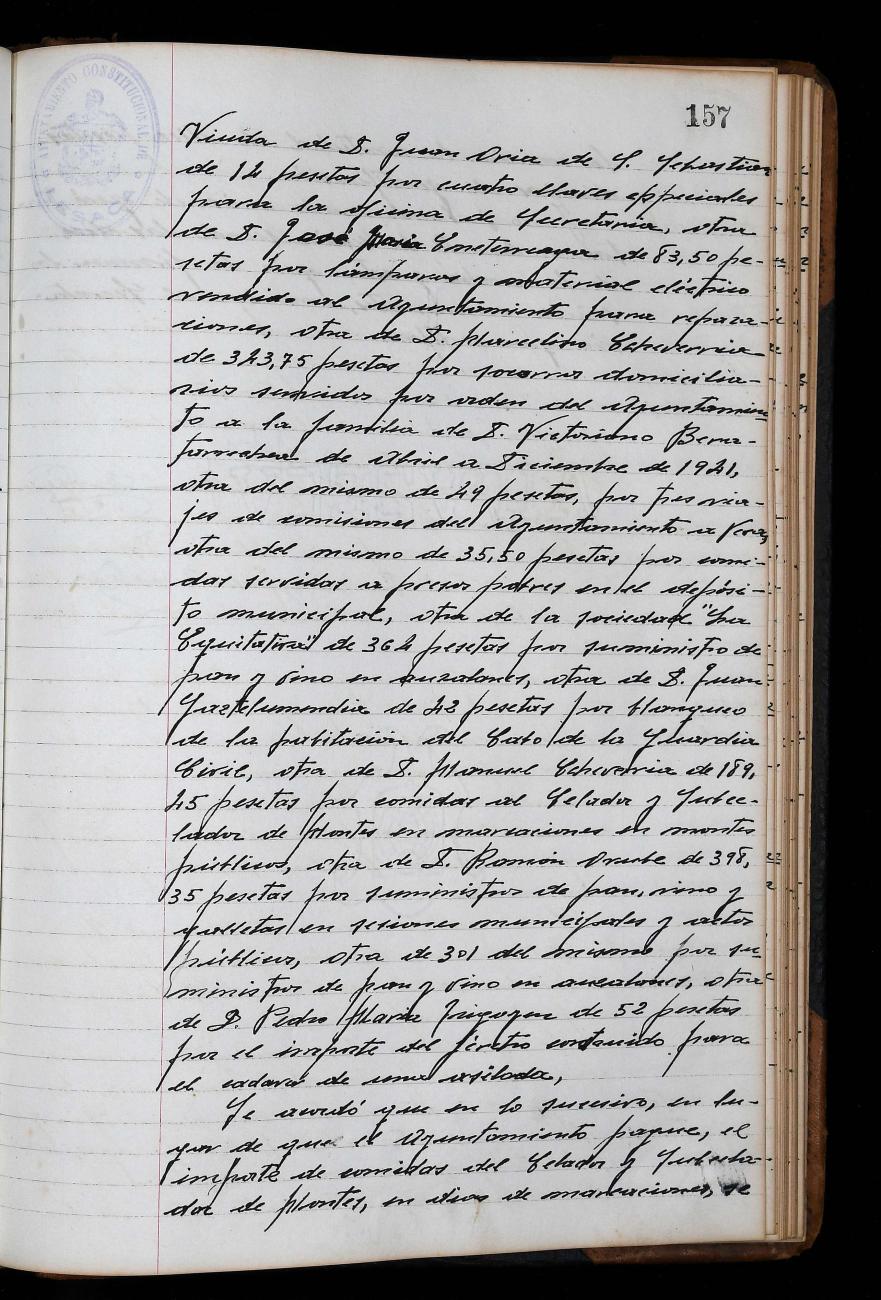 157
AYUNTAMIENTO CONSTITUCIONAL DE
Viuda de D. Juan Oria de S. Sebastian
de 14 pesetas por cuatro llaves especiales
para la oficina de Secretaria, otra
de D. José Maria de 83,50 pe-
setas por lámparas y material eléctrico
vendido al Ayuntamiento para repara-
ciones, otra de D. Marcelino Echeverria
de 343,75 pesetas por socorros domicilia-
rios servidos por orden del Ayuntamien
to a la familia de D. Victoriano Bera-
tarrechea de Abril a Diciembre de 1921,
otra del mismo de 49 pesetas, por tres via-
jes de comisiones del Ayuntamiento a Vera,
otra del mismo de 35,50 pesetas por comi-
das servidas a presos pobres en el depósi-
to municipal, otra de la sociedad "La
Equitativa" de 364 pesetas por suministro de
pan y vino en auzalanes, otra de D. Juan
Gaztelumendia de 42 pesetas por blanqueo
de la habitación del Cabo de la Guardia
Civil, otra de D. Manuel Echeverria de 189,
45 pesetas por comidas al Celador y Subce-
lador de Montes en marcaciones en montes
públicos, otra de D. Ramón de 398,
35 pesetas por suministros de pan, vino y
galletas en sesiones municipales y actos
públicos, otra de 301 del mismo por su
ministros de pan y vino en auzalanes, otra
de D. Pedro Maria Irigoyen de 52 pesetas
por el importe del féretro construido para
el cadaver de una asilada,
Se acordó que en lo sucesivo, en lu-
gar de que el Ayuntamiento pague, el
importe de comidas del Celador y Subcela-
dor de Montes, en dias de marcaciones, se